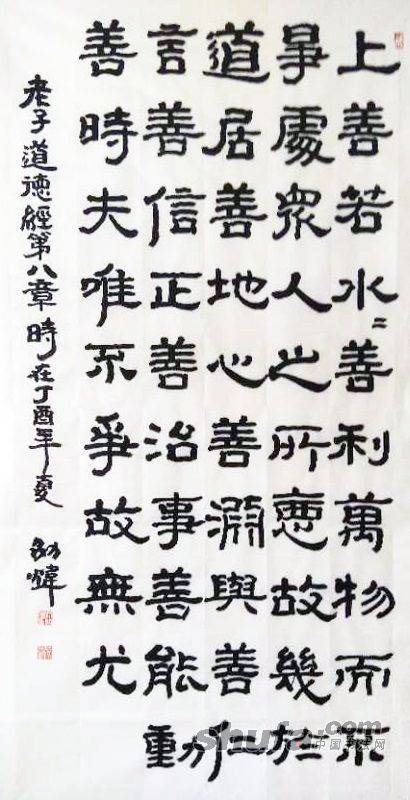 上善若水〻善利萬物而不
爭處衆人之所惡故幾於
道居善地心善淵與善仁
言善信正善治事善能動
善時夫唯不爭故無尤
老子道德經第八章時在丁酉年夏
shufa.com
中国书法网